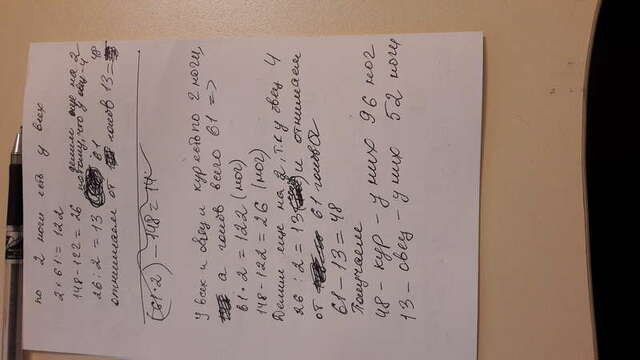 по 2 ноги есть у всех
2 · 61 = 122
148-122 = 26 делим еще на 2
потому, что у овец-4
26 : 2 = 13 61 48
отнимаем от голов 13 =
(61·2) - 148 = 14
У всех и овец и кур есть по 2 ноги,
а голов всего 61 =>
61 · 2 = 122 (ног)
148 - 122 = 26 (ног)
Делим еще на 2, т.к у овец 4
26 : 2 = 13 и отнимаем
от 61 голов
61 - 13 = 48
Получаем
48 - кур - у них 96 ног
13 - овец - у них 52 ноги